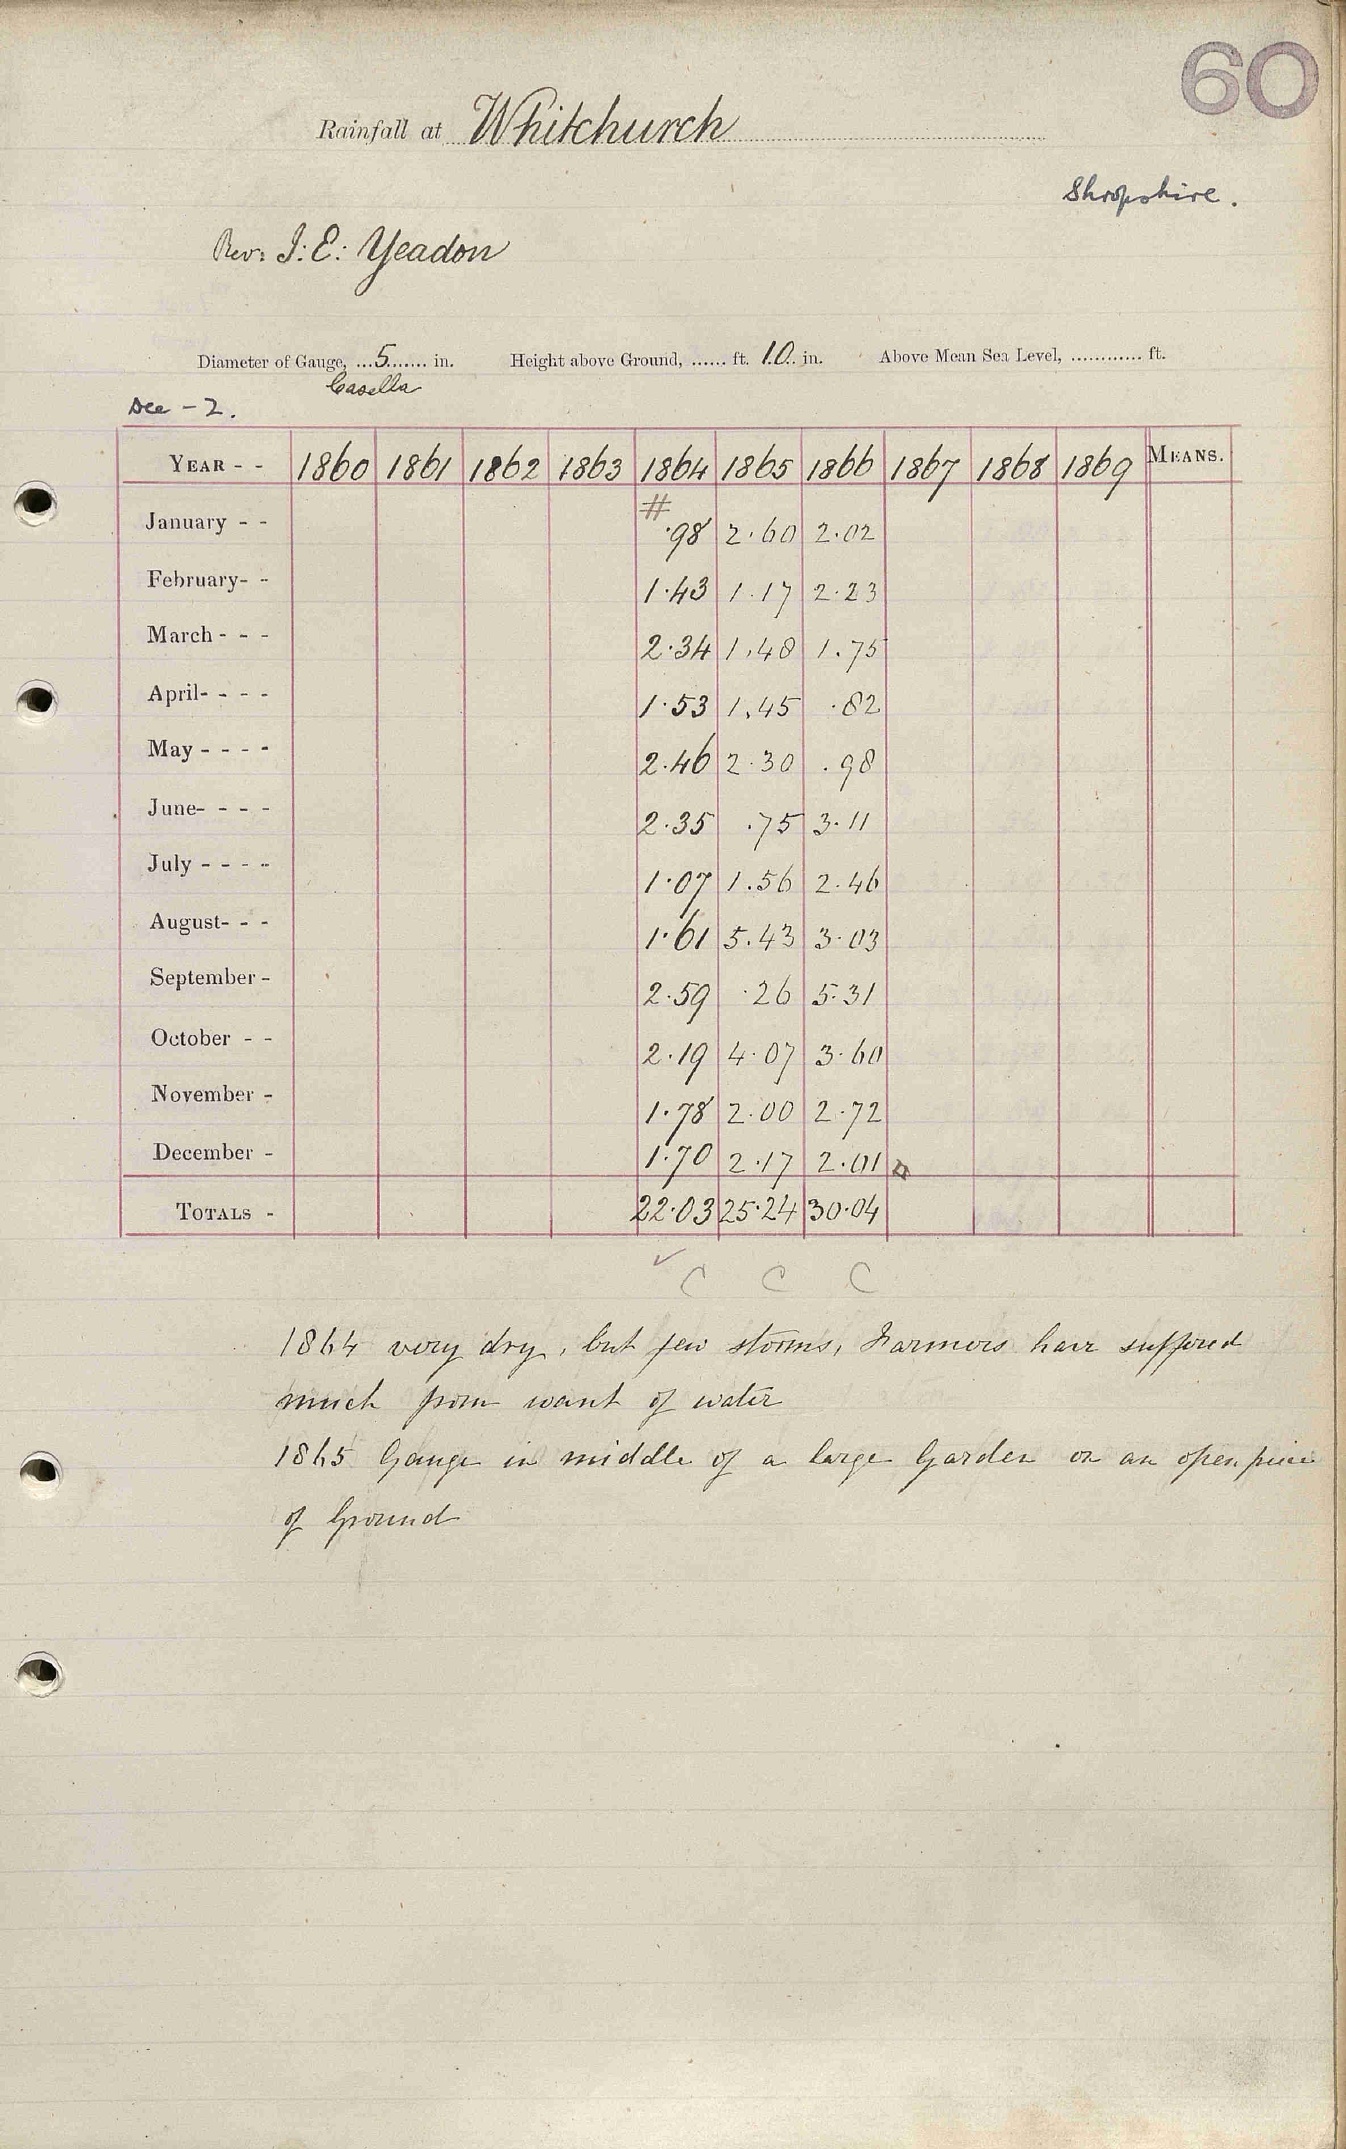 60
Rainfall at Whitchurch
Shropshire.
Rev: J: E: Yeadon
Diameter of Gauge, ...5....... in. Height above Ground, ...... ft. 10.. in. Above Mean Sea Level, ............ ft.
Casella
Dec - 2.
YEAR - - 1860 1861 1862 1863 1864 1865 1866 1867 1868 1869 MEANS.
#
January - - .98 2.60 2.02
February- - 1.43 1.17 2.23
March - - - 2.34 1.48 1.75
April- - - - 1.53 1.45 .82
May - - - - 2.46 2.30 .98
June- - - - 2.35 .75 3.11
July - - - - 1.07 1.56 2.46
August- - - 1.61 5.43 3.03
September - 2.59 .26 5.31
October - - 2.19 4.07 3.60
November - 1.78 2.00 2.72
December - 1.70 2.17 2.01
TOTALS - 22.03 25.24 30.04
✓ C C C
1864 very dry, but few storms, Farmers have suffered
much from want of water
1865 Gauge in middle of a large Garden on an open piece
of Ground